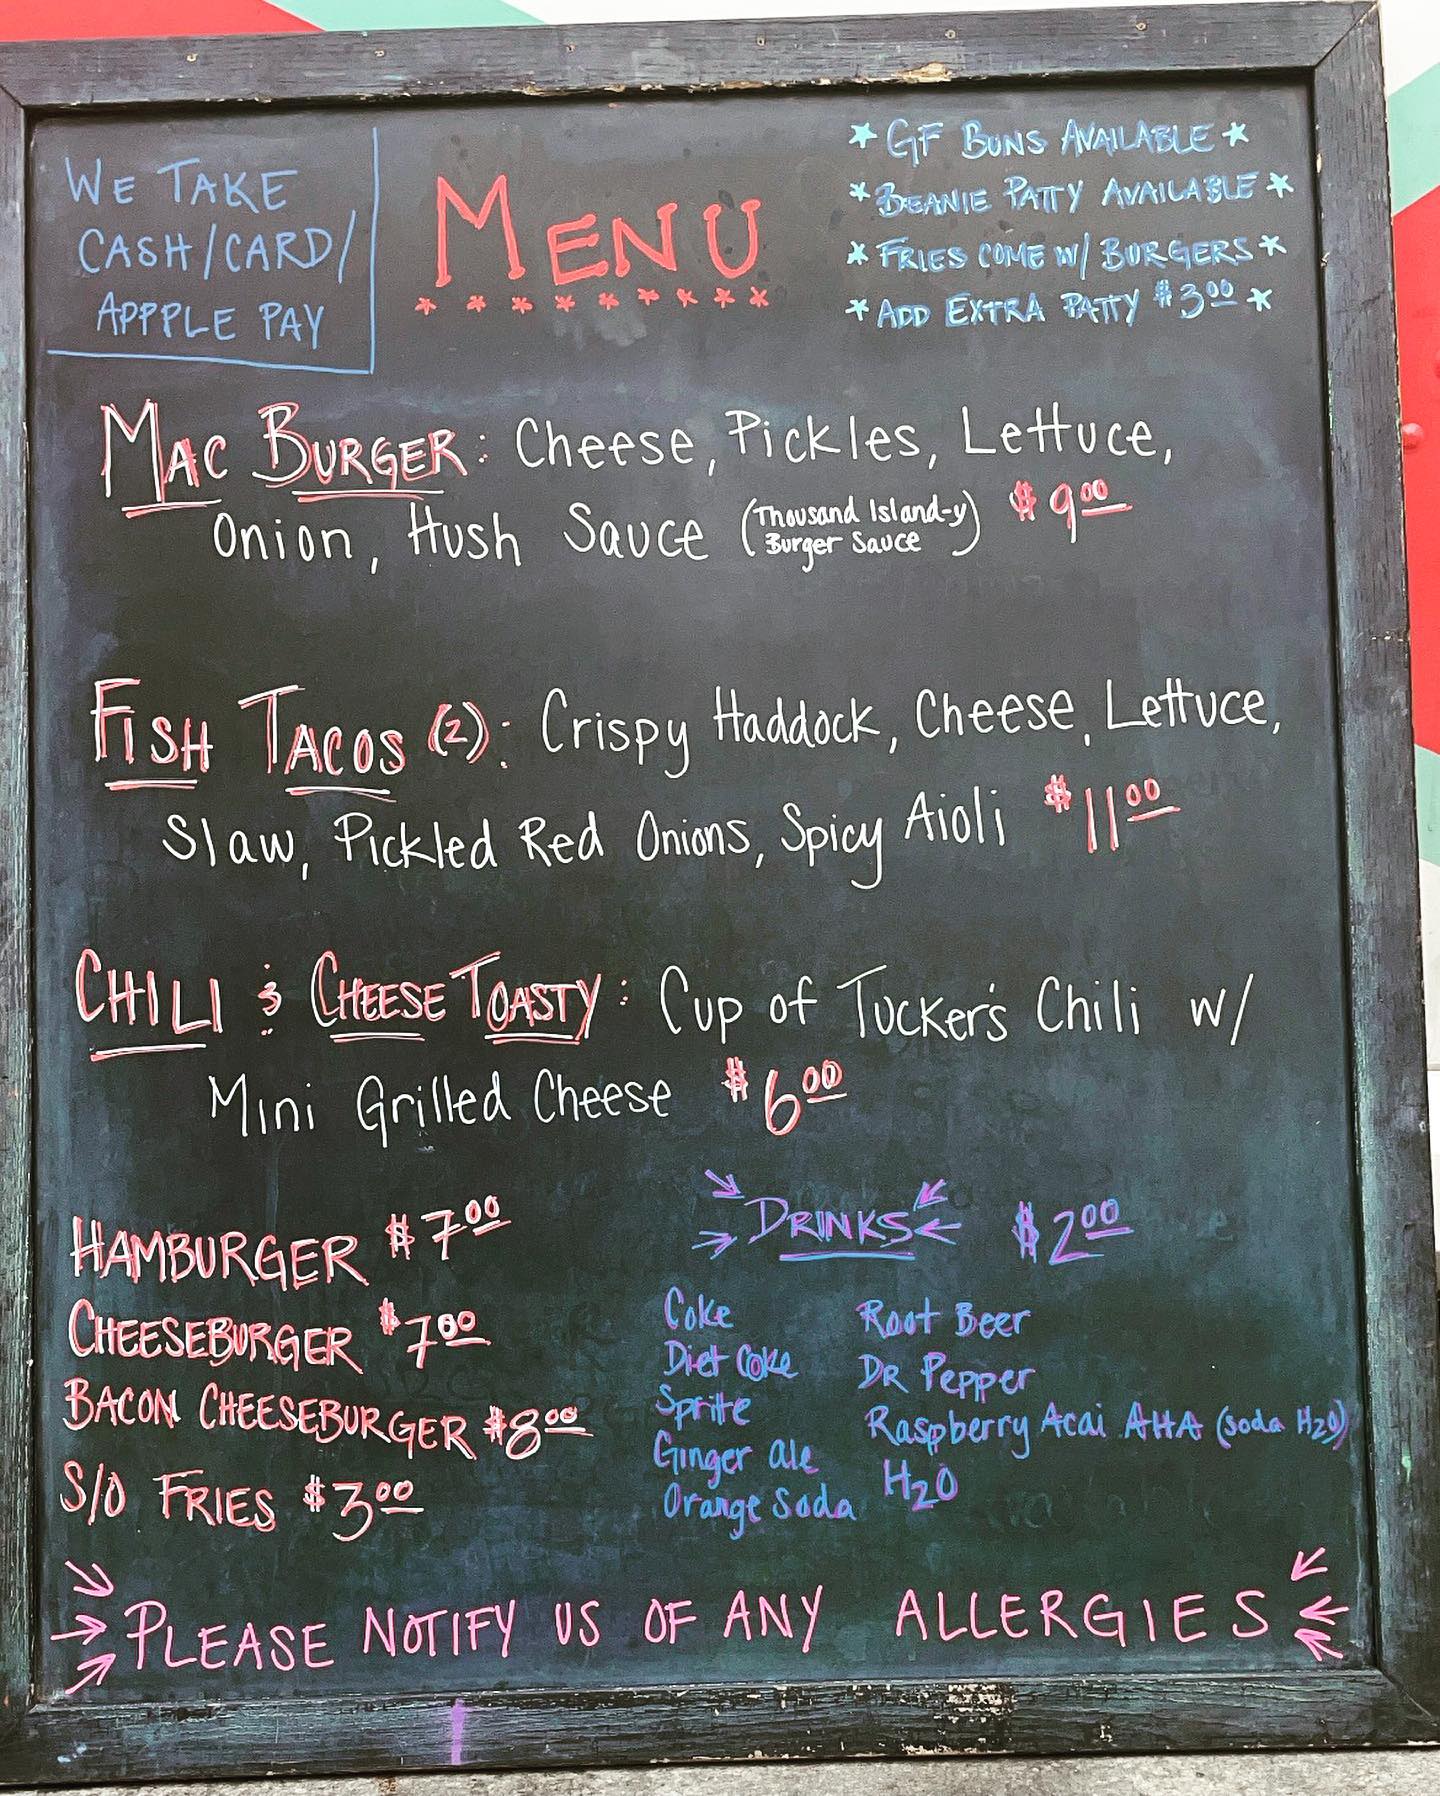 WE TAKE
CASH/CARD/
APPPLE PAY
MENU
* GF BUNS AVAILABLE *
* BEANIE PATTY AVAILABLE *
* FRIES COME W/ BURGERS *
* ADD EXTRA PATTY $3.00 *
MAC BURGER: Cheese, Pickles, Lettuce,
Onion, Hush Sauce (Thousand Island-y
Burger Sauce) $9.00
FISH TACOS (2): Crispy Haddock, Cheese, Lettuce,
Slaw, Pickled Red Onions, Spicy Aioli $11.00
CHILI & CHEESE TOASTY: Cup of Tucker's Chili w/
Mini Grilled Cheese $6.00
HAMBURGER $7.00
CHEESEBURGER $7.00
BACON CHEESEBURGER $8.00
S/O FRIES $3.00
DRINKS $2.00
Coke
Diet Coke
Sprite
Ginger ale
Orange Soda
Root Beer
DR Pepper
Raspberry Acai AHA (soda H2O)
H2O
PLEASE NOTIFY US OF ANY ALLERGIES